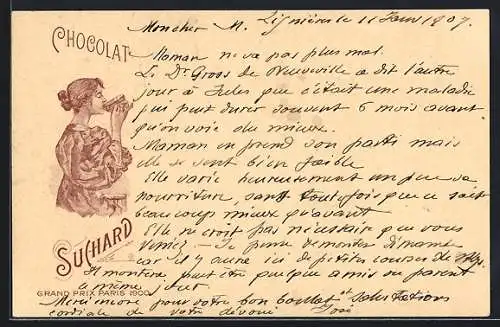 CHOCOLAT
Moncher M. Lignières le 11 Janv 1907.
Maman ne va pas plus mal.
Le Dr Gross de Neuveville a dit l'autre
jour à Jules que c'était une maladie
qui peut durer souvent 6 mois avant
qu'on voie du mieux.
Maman en prend son parti mais
elle se sent bien faible
Elle varie heureusement un peu sa
nourriture, sans toutefois que ce soit
beaucoup mieux qu'avant
Elle ne croit pas nécessaire que vous
veniez - Je pense demander
car il y aura ici de petites courses de
Il montera peut être quelque amis ou parent
le même jour.
SUCHARD
GRAND PRIX PARIS 1900
Merci encore pour votre bon et salutations
cordiales de votre dévoué